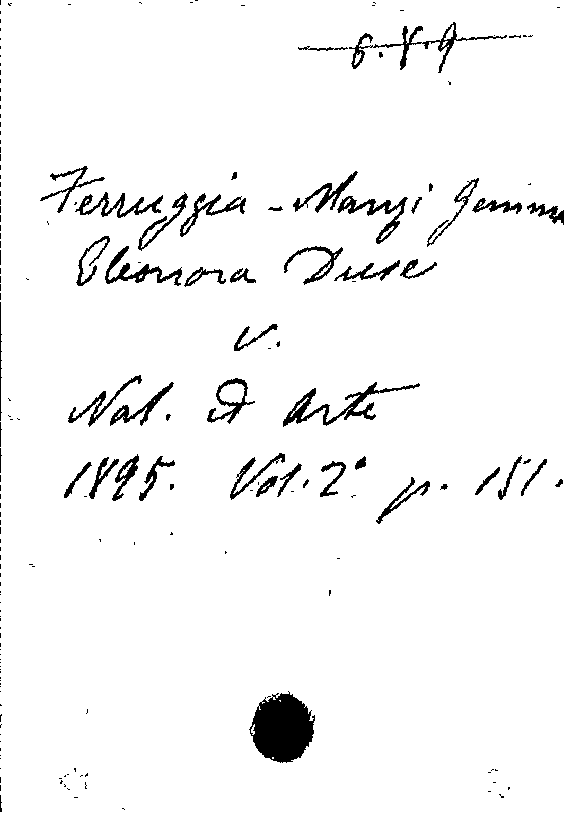 6.V.9
Ferruggia - Manzi Gemma
Eleonora Duse
v.
Nat. ed Arte
1895. Vol. 2° p. 151.